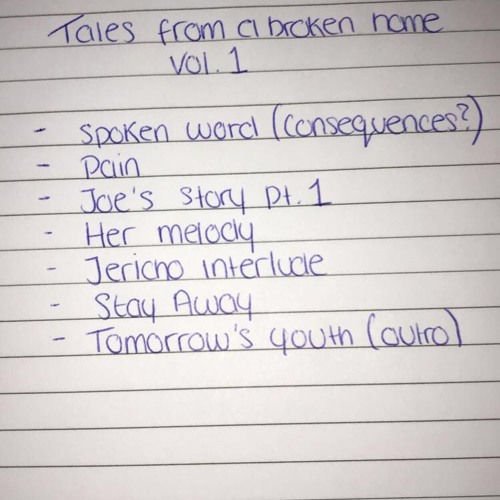 Tales from a broken home
vol. 1
- spoken word (consequences?)
- Pain
- Joe's story pt. 1
- Her melody
- Jericho interlude
- Stay Away
- Tomorrow's youth (outro)